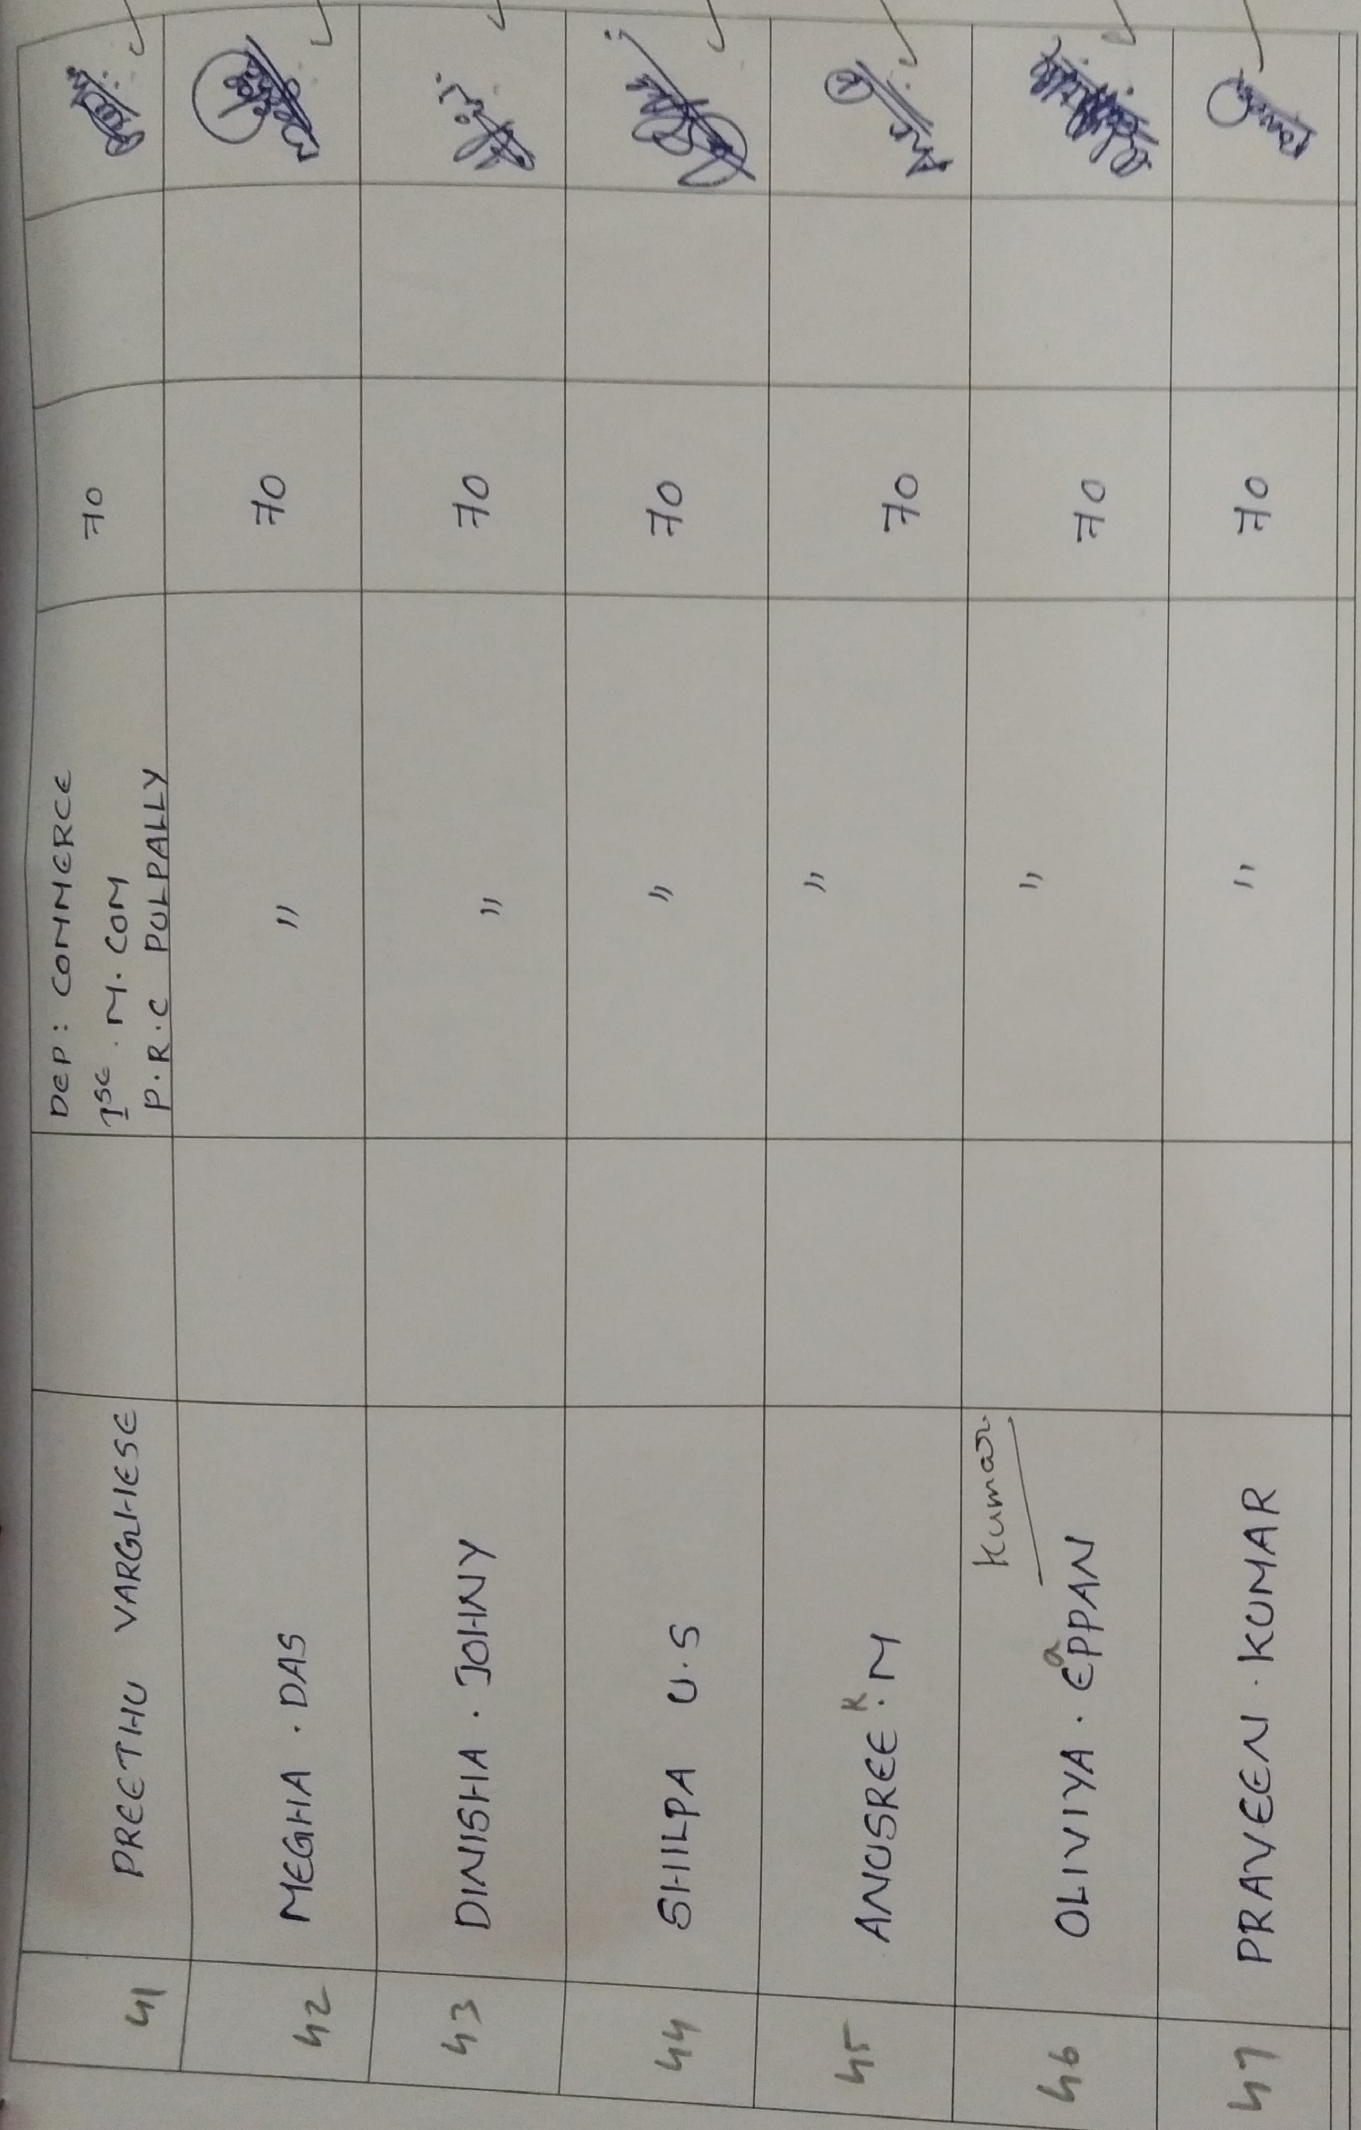 41 PREETHU VARGHESE DEP: COMMERCE 70
1st. M. COM
P.R.C PULPALLY
42 MEGHA . DAS " 70
43 DINISHA . JOHNY " 70
44 SHILPA U.S " 70
45 ANUSREE K. M " 70
kumar
46 OLIVIYA . EaPPAN " 70
47 PRAVEEN . KUMAR " 70